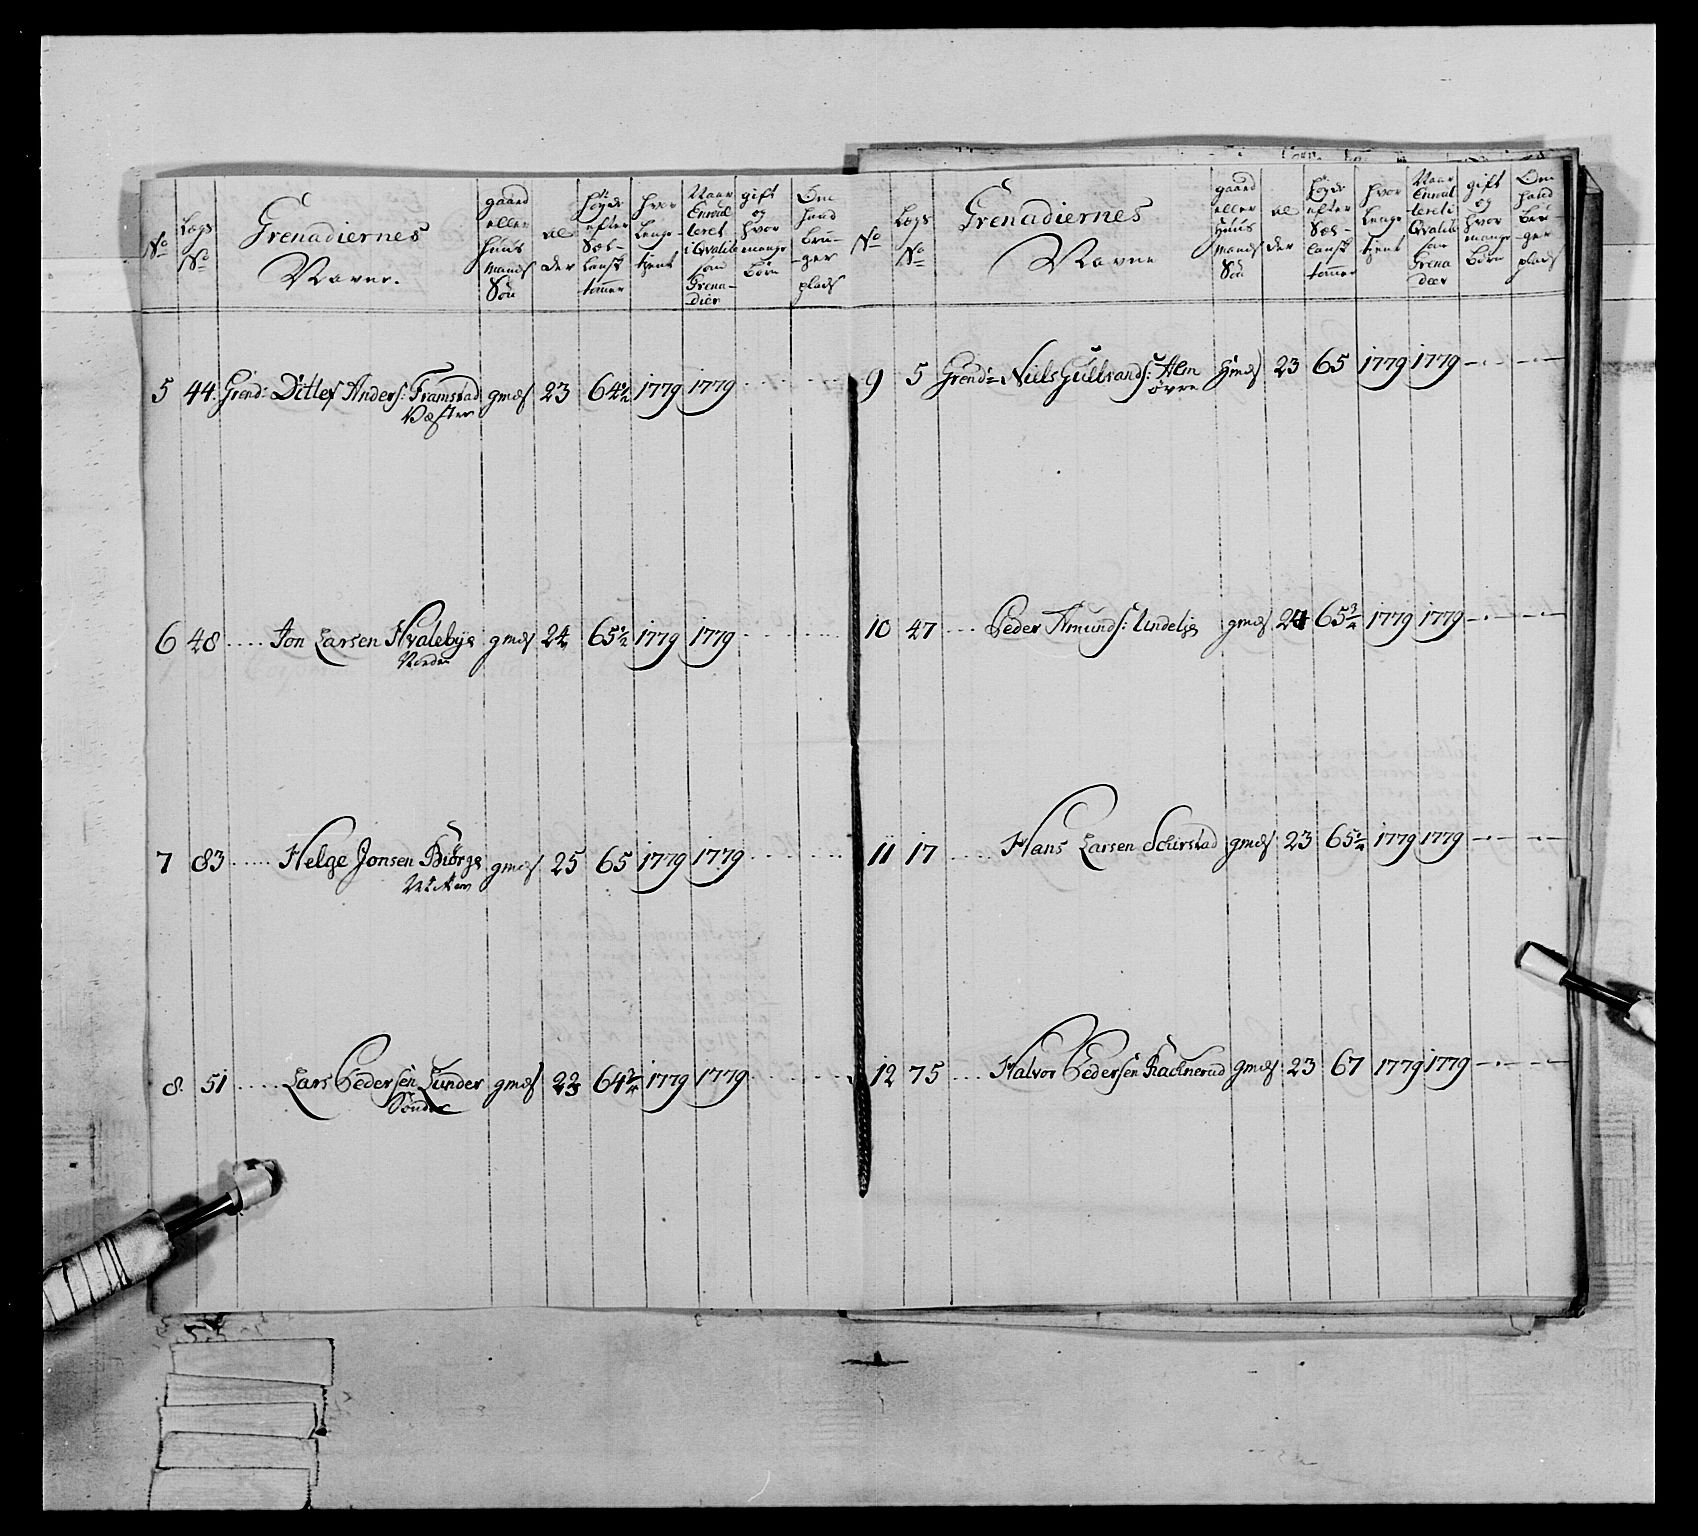 No
Lægs No
Grenadiernes Navne.
gaard eller Huus mands Søn
al der
Høyde efter Sæl- landsk tommer
hvor længe tient
Naar Enroul leret i Qvalite som Grena- dier
gift og hvor mange børn
Om hand bru- ger plads
5 44. Grend: Ditlef Anders: Framstad gmds 23 64½ 1779 1779
Væster
6 48 ..... Jon Larsen Hvalebye gmds 24 65½ 1779 1779
Nordre
7 83 ..... Helge Jonsen Biørge gmds 25 65 1779 1779
8. 51 ..... Lars Pedersen Lunder gmds 23 64¾ 1779 1779
Søndre
No
Lægs No
Grenadiernes Navne
gaard eller Huus mands Søn
al der
Høyde efter Sæl- landsk tommer
hvor længe tient
Naar Enroul leret i Qvalite som Grena deer
gift og hvor mange børn
Om hand bru- ger plads
9 5 Grend: Niels Gulbrands: Alm Hmds 23 65 1779 1779
øvre
10 47 .... Peder Amunds: Undelje gmds 24 65¾ 1779 1779
11 17 .... Hans Larsen Schirstad gmds 23 65¼ 1779 1779
12 75 .... Halvor Pedersen Rachnerud gmds 23 67 1779 1779